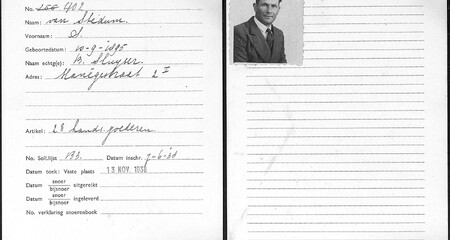 No. 258 402
Naam: van Stedum.
Voornaam: S.
Geboortedatum: 10-9-1895
Naam echtg(e): B. Sluyser.
Adres: Manegestraat 2 I
Artikel: 28 handsgoederen
No. Soll.lijst 193. Datum inschr. 7-6-3d
Datum toek: Vaste plaats 13 NOV. 1936
Datum snoer bijsnoer uitgereikt
Datum snoer bijsnoer ingeleverd
No. verklaring snoerenboek